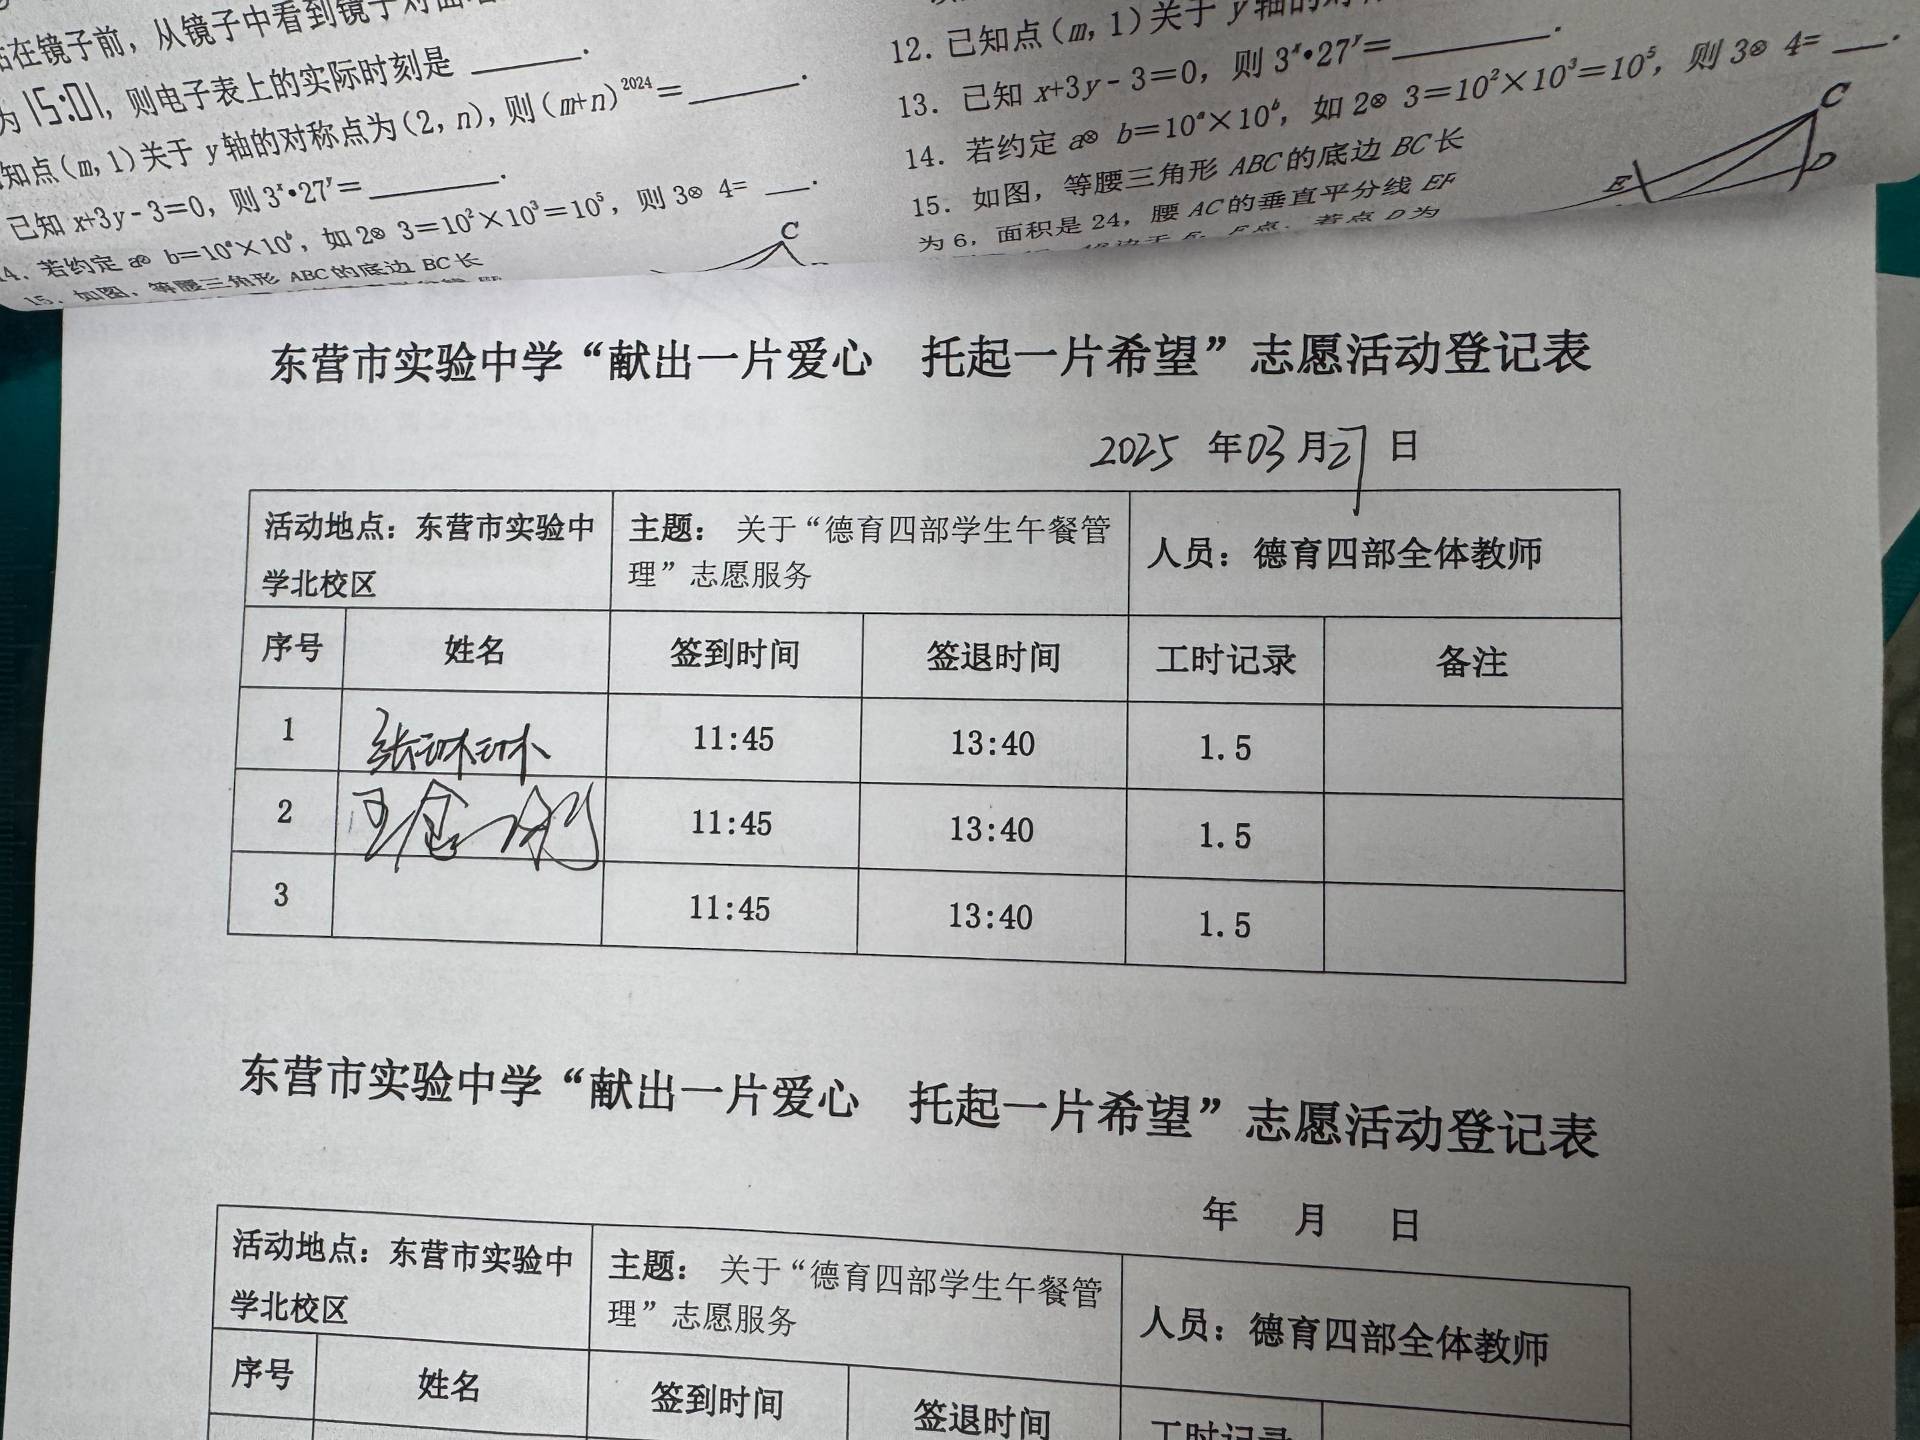 站在镜子前，从镜子中看到镜子对面墙
为15:01，则电子表上的实际时刻是______.
知点(m,1)关于y轴的对称点为(2,n),则(m+n)²⁰²⁴=______.
已知x+3y-3=0，则3ˣ•27ʸ=______.
14．若约定a⊗ b=10ᵃ×10ᵇ，如2⊗ 3=10²×10³=10⁵，则3⊗ 4= ___.
15．如图，等腰三角形ABC的底边BC长
C
12．已知点(m,1)关于y轴的对
13．已知x+3y-3=0，则3ˣ•27ʸ=______.
14．若约定a⊗ b=10ᵃ×10ᵇ，如2⊗ 3=10²×10³=10⁵，则3⊗ 4= ___.
15．如图，等腰三角形ABC的底边BC长
为6，面积是24，腰AC的垂直平分线EF
点．若点D为
C
E
D
东营市实验中学“献出一片爱心　托起一片希望”志愿活动登记表
2025 年03月27日
活动地点：东营市实验中
学北校区
主题： 关于“德育四部学生午餐管
理”志愿服务
人员：德育四部全体教师
序号 姓名 签到时间 签退时间 工时记录 备注
1 张琳琳 11:45 13:40 1.5
2 11:45 13:40 1.5
3 11:45 13:40 1.5
东营市实验中学“献出一片爱心　托起一片希望”志愿活动登记表
年 月 日
活动地点：东营市实验中
学北校区
主题： 关于“德育四部学生午餐管
理”志愿服务
人员：德育四部全体教师
序号 姓名 签到时间 签退时间 工时记录